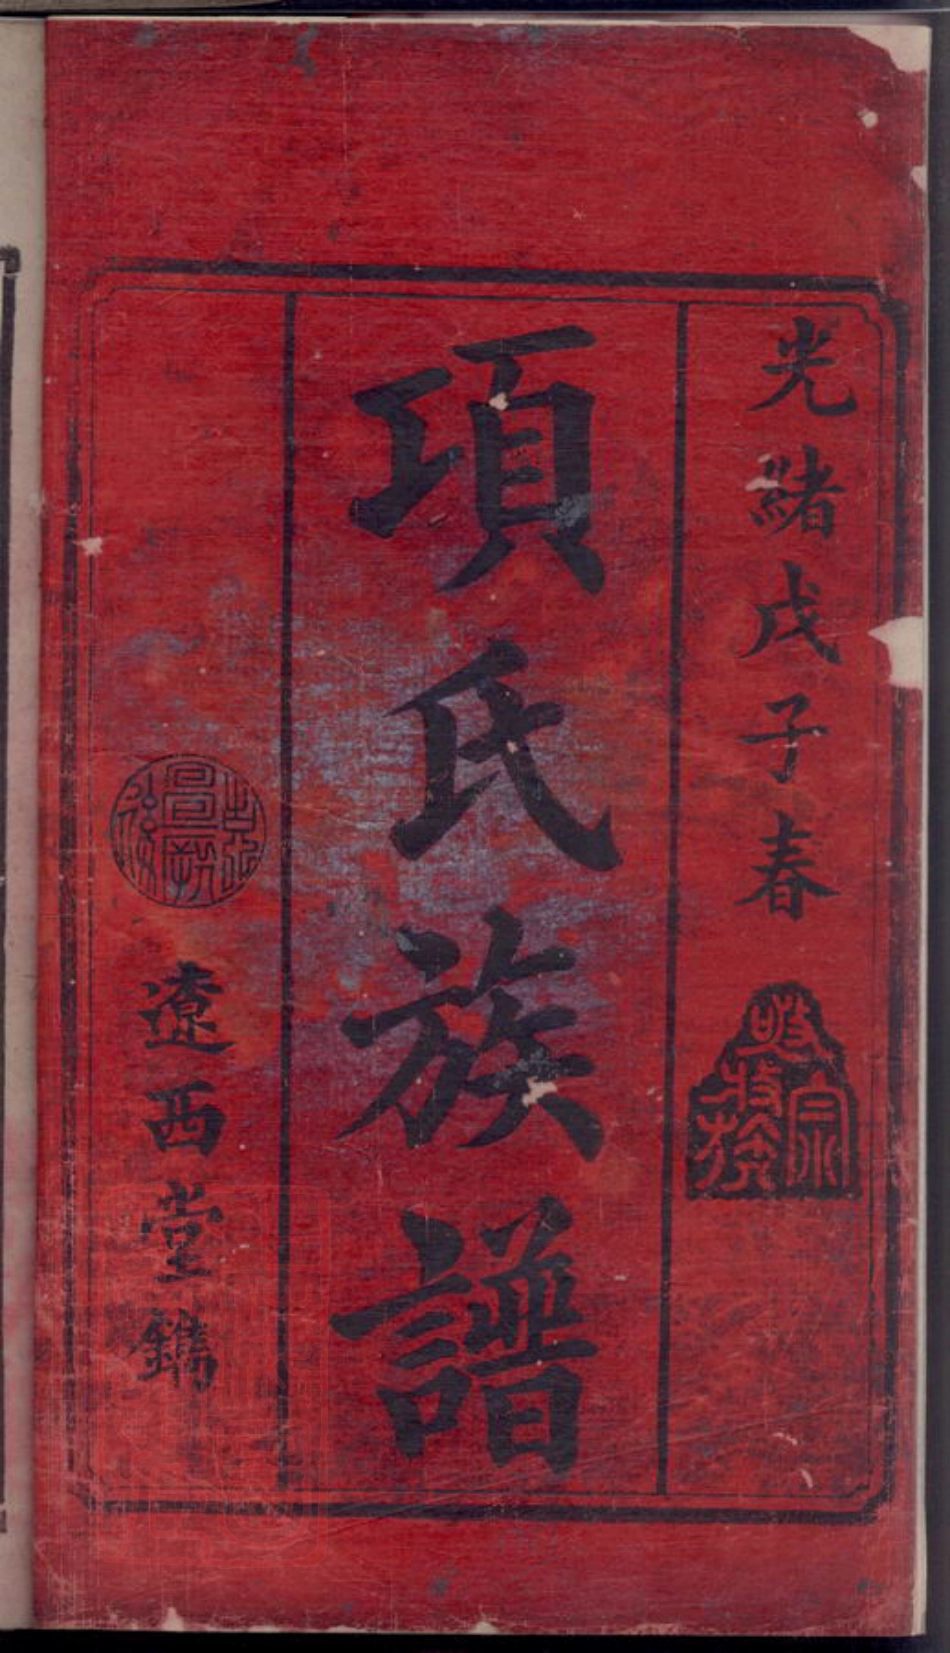 光緒戊子春
項氏族譜
遼西堂鐫